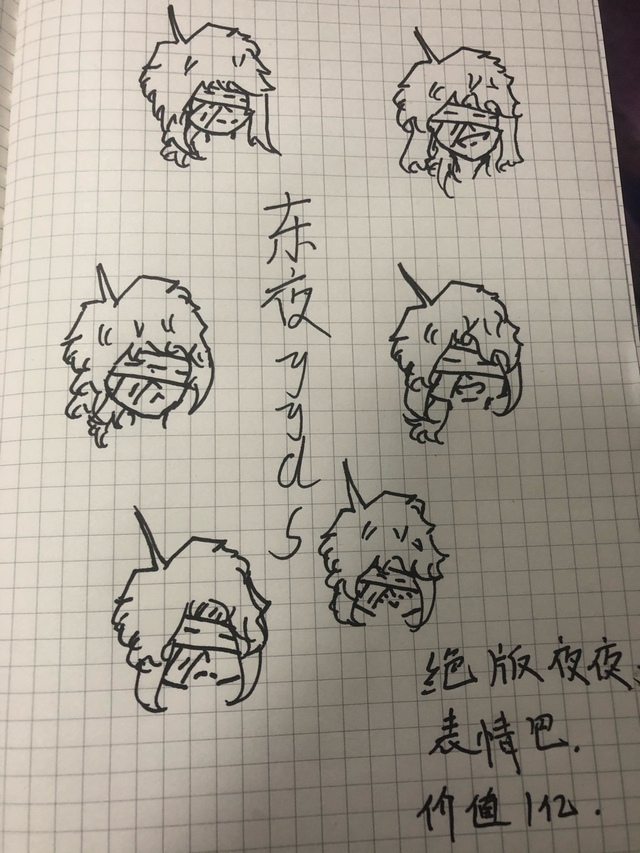 东夜yyds
绝版夜夜
表情巴.
价值1亿.